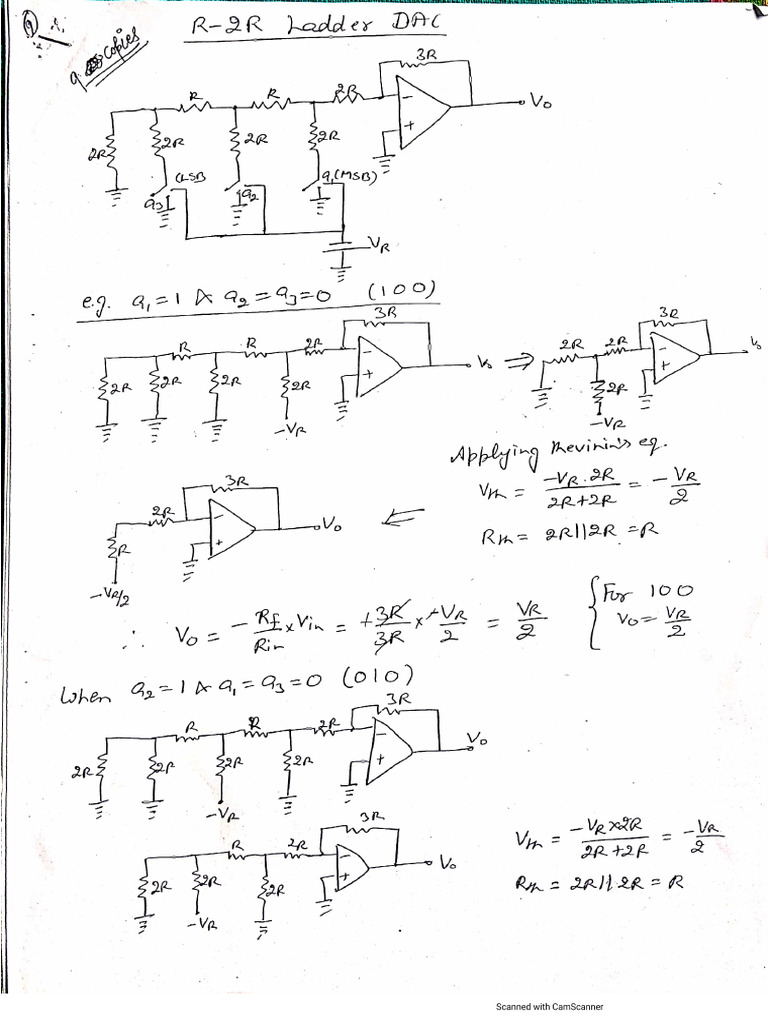 R-2R Ladder DAC
copies
3R
R R 2R
- V₀
2R 2R 2R 2R +
(LSB a₁(MSB)
a₃ a₂
V_R
e.g. a₁ = 1 & a₂ = a₃ = 0 (100)
3R 3R
R R 2R - V₀ ⇒ 2R 2R - V₀
2R 2R 2R 2R + 2R +
-V_R -V_R
Applying Thevinin's eq.
V_th = -V_R . 2R / 2R + 2R = -V_R / 2
R_th = 2R || 2R = R
3R
2R - V₀ ⇐
R +
-V_R/2
∴ V₀ = - R_f / R_in × V_in = + 3R / 3R × + V_R / 2 = V_R / 2 { For 100
V₀ = V_R / 2
When a₂ = 1 & a₁ = a₃ = 0 (010)
3R
R R 2R - V₀
2R 2R 2R 2R +
-V_R
3R
R 2R - V₀
2R 2R 2R +
-V_R
V_th = -V_R × 2R / 2R + 2R = -V_R / 2
R_th = 2R || 2R = R
Scanned with CamScanner